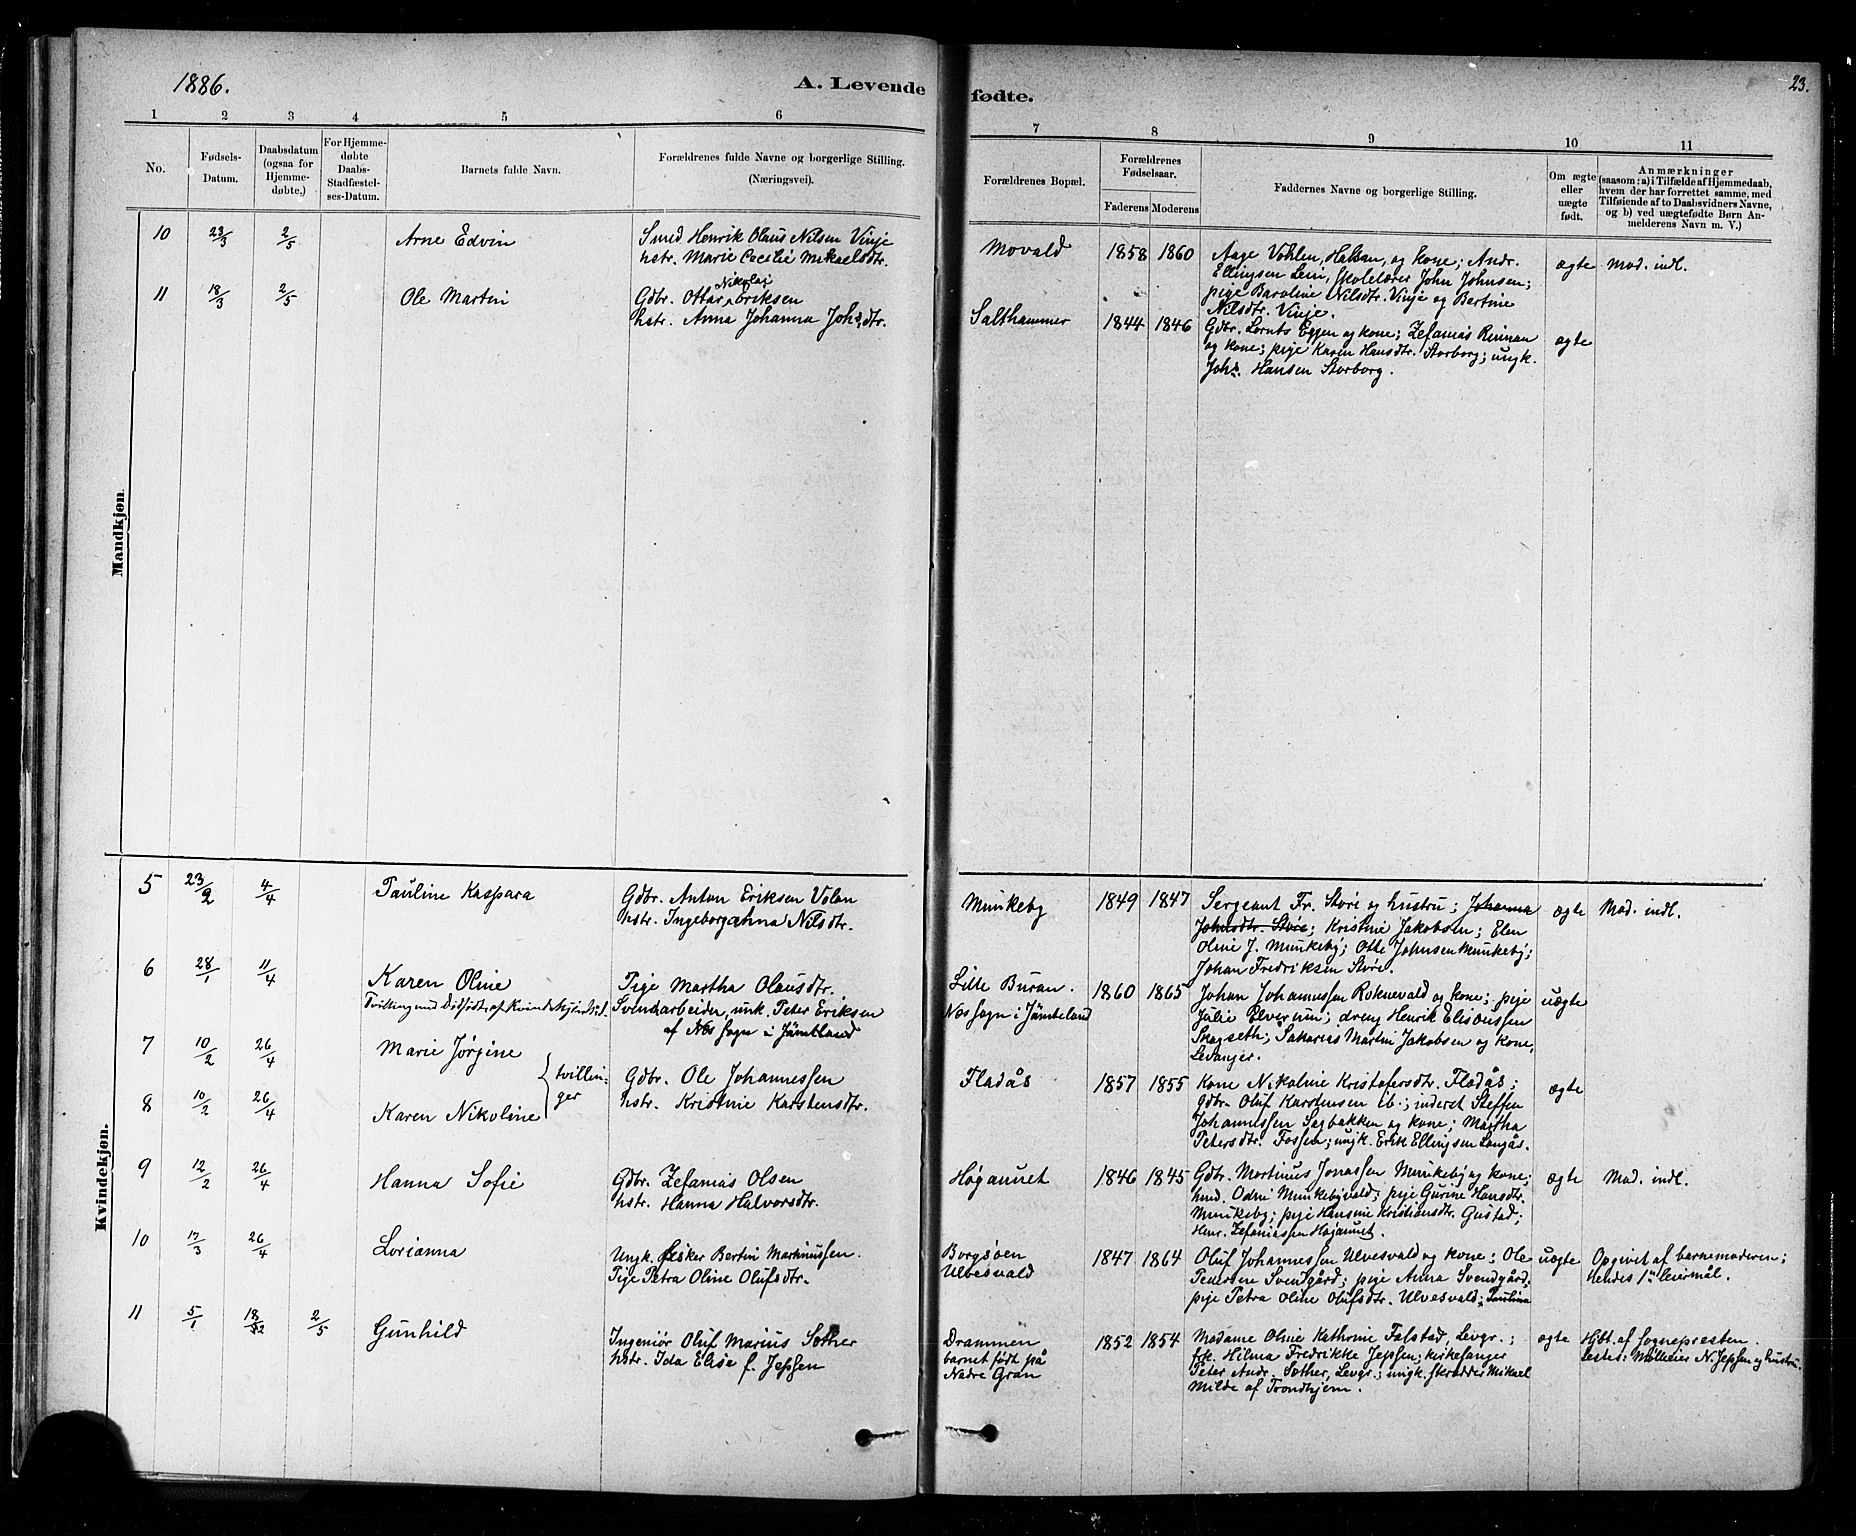 1886.
A. Levende fødte.
23.
1 2 3 4 5 6 7 8 9 10 11
No.
Fødsels-Datum.
Daabsdatum (ogsaa for Hjemme-døbte,)
For Hjemme-døbte Daabs-Stadfæstel-ses-Datum.
Barnets fulde Navn.
Forældrenes fulde Navne og borgerlige Stilling.
(Næringsvei).
Forældrenes Bopæl.
Forældrenes Fødselsaar.
Faderens Moderens
Faddernes Navne og borgerlige Stilling.
Om ægte eller uægte født.
Anmærkninger
(saasom: a) i Tilfælde af Hjemmedaab,
hvem der har forrettet samme, med
Tilføiende af to Daabsvidners Navne,
og b) ved uægtefødte Børn An-
melderens Navn m. V.)
Mandkjøn.
10 23/3 2/5 Arne Edvin
Smed Henrik Olaus Nilsen Vinje
hstr. Marie Cecilie Mikaelsdtr.
Movald 1858 1860
Aage Vohlen, Halsan, og kone; Andr.
Ellingsen Lein, skolelærer John Johnsen;
pige Baroline Nilsdtr. Vinje og Bertine
Nilsdtr. Vinje.
ægte Mod. indl.
11 18/3 2/5 Ole Martin
Nikolai
Gdbr. Ottar Eriksen
hstr. Anna Johanna Johs.dtr.
Salthammer 1844 1846
Gdbr. Lornts Eggen og kone; Zefanias Rinnan
og kone; pige Karen Hansdtr. Storborg; ungk.
Johs. Hansen Storborg.
ægte
Kvindekjøn.
5 23/2 4/4 Pauline Kaspara
Gdbr. Anton Eriksen Volan
hstr. Ingeborganna Nilsdtr.
Munkeby 1849 1847
Sergeant Fr. Støre og hustru; Johanna
Johnsdtr. Støre; Kristine Jakobsen; Elen
Oline J. Munkeby; Otte Johnsen Munkeby;
Johan Fredriksen Støre.
ægte Mod. indl.
6 28/1 11/4 Karen Oline
Tvilling med
Pige Martha Olausdtr.
Svendarbeider, unk. Peter Eriksen
af Näs sogn i Jämtland
Lille Buran.
Näs sogn i Jämteland
1860 1865
Johan Johannessen Roknevald og kone; pige
Julie Elverum; dreng Henrik Elisæussen
Skogseth; Sakarias Martin Jakobsen og kone,
Levanger.
uægte
7 10/2 26/4 Marie Jørgine
tvillin-
ger
8 10/2 26/4 Karen Nikoline
Gdbr. Ole Johannessen
hstr. Kristine Karstensdtr.
Fladås 1857 1855
Kone Nikoline Kristofersdtr. Fladås;
Gdbr. Oluf Karstensen ib.; inderst Steffen
Johannessen Sagbakken og kone; Martha
Petersdtr. Fossen; ungk. Erik Ellingsen Langås.
ægte
9 12/2 26/4 Hanna Sofie
Gdbr. Zefanias Olsen
hstr. Hanna Halvorsdtr.
Høgaunet 1846 1845
Gdbr. Martinus Jonassen Munkeby og kone;
hmd. Odin Munkebyvald; pige Gurine Hansdtr.
Munkeby; pige Hansine Kristiansdtr. Gustad;
Henr. Zefaniassen Høgaunet.
ægte Mod. indl.
10 17/3 26/4 Lorianna
Ungk. fisker Bertin Martinussen.
Pige Petra Oline Olufsdtr.
Borgsøen
Ulvesvald
1847 1864
Oluf Johannessen Ulvesvald og kone; Ole
Pedersen Svendgård; pige Anna Svendgård,
pige Petra Oline Olufsdtr. Ulvesvald; Paulina
uægte
Opgivet af barnemoderen;
hendes 1ste leiermål.
11 5/1 18/12 2/5 Gunhild
Ingeniør Oluf Marius Sother
hstr. Ida Elise f. Jepsen
Drammen
barnet født på
Nedre Gran
1852 1854
Madame Oline Kathrine Falstad, Levgr.;
frk. Hilma Fredrikke Jepsen; kirkesanger
Peter Andr. Sother, Levgr.; ungk. skrædder Mikael
Milde af Trondhjem.
ægte
Hjbt. af sognepresten.
testes: Møll N. Jepsen og hustru.